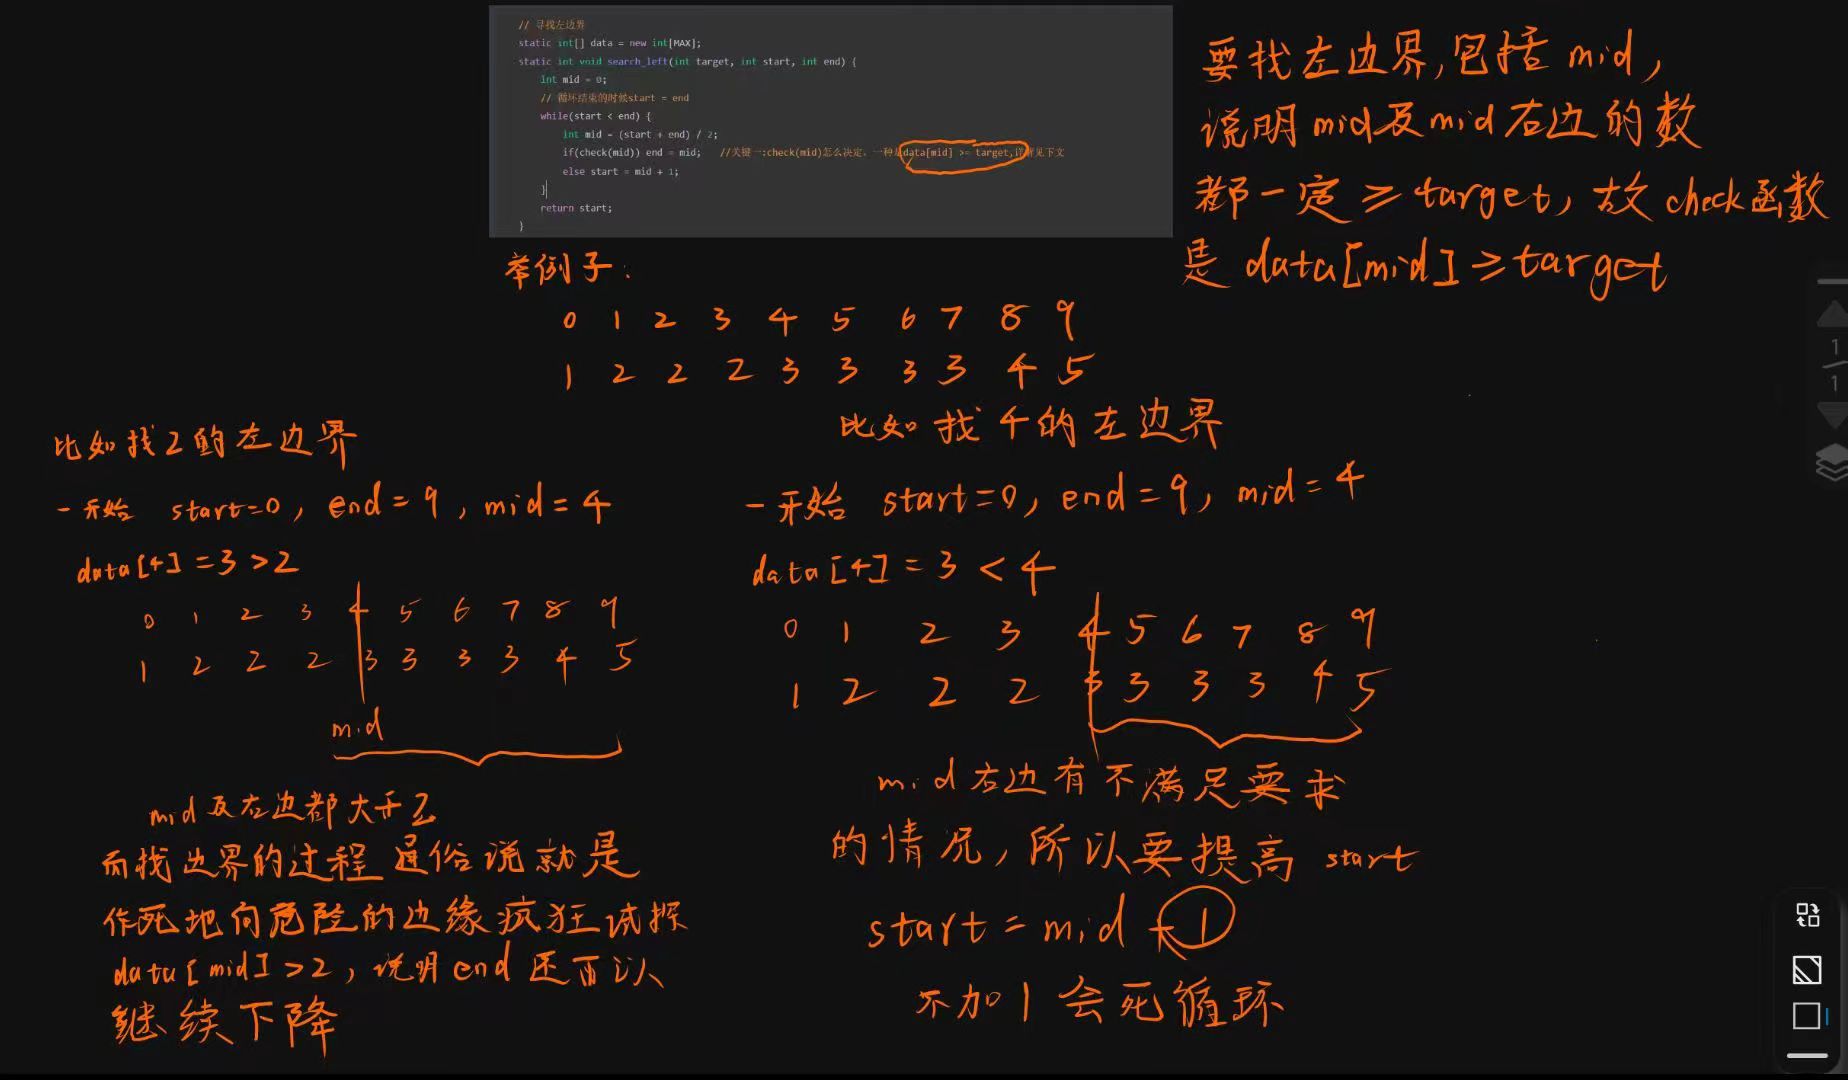 // 寻找左边界
static int[] data = new int[MAX];
static int void search_left(int target, int start, int end) {
int mid = 0;
// 循环结束的时候start = end
while(start < end) {
int mid = (start + end) / 2;
if(check(mid)) end = mid; //关键一:check(mid)怎么决定，一种是data[mid] >= target,详解见下文
else start = mid + 1;
}
return start;
}
要找左边界,包括mid,
说明mid及mid右边的数
都一定≥target, 故check函数
是data[mid]≥target
举例子:
0 1 2 3 4 5 6 7 8 9
1 2 2 2 3 3 3 3 4 5
比如找2的左边界
一开始 start=0, end=9, mid=4
data[4]=3>2
0 1 2 3 4 5 6 7 8 9
1 2 2 2 3 3 3 3 4 5
mid
mid及右边都大于2
而找边界的过程通俗说就是
作死地向危险的边缘疯狂试探
data[mid]>2, 说明end还可以
继续下降
比如找4的左边界
一开始 start=0, end=9, mid=4
data[4]=3<4
0 1 2 3 4 5 6 7 8 9
1 2 2 2 3 3 3 3 4 5
mid右边有不满足要求
的情况, 所以要提高start
start=mid+1
不加1会死循环
1
1